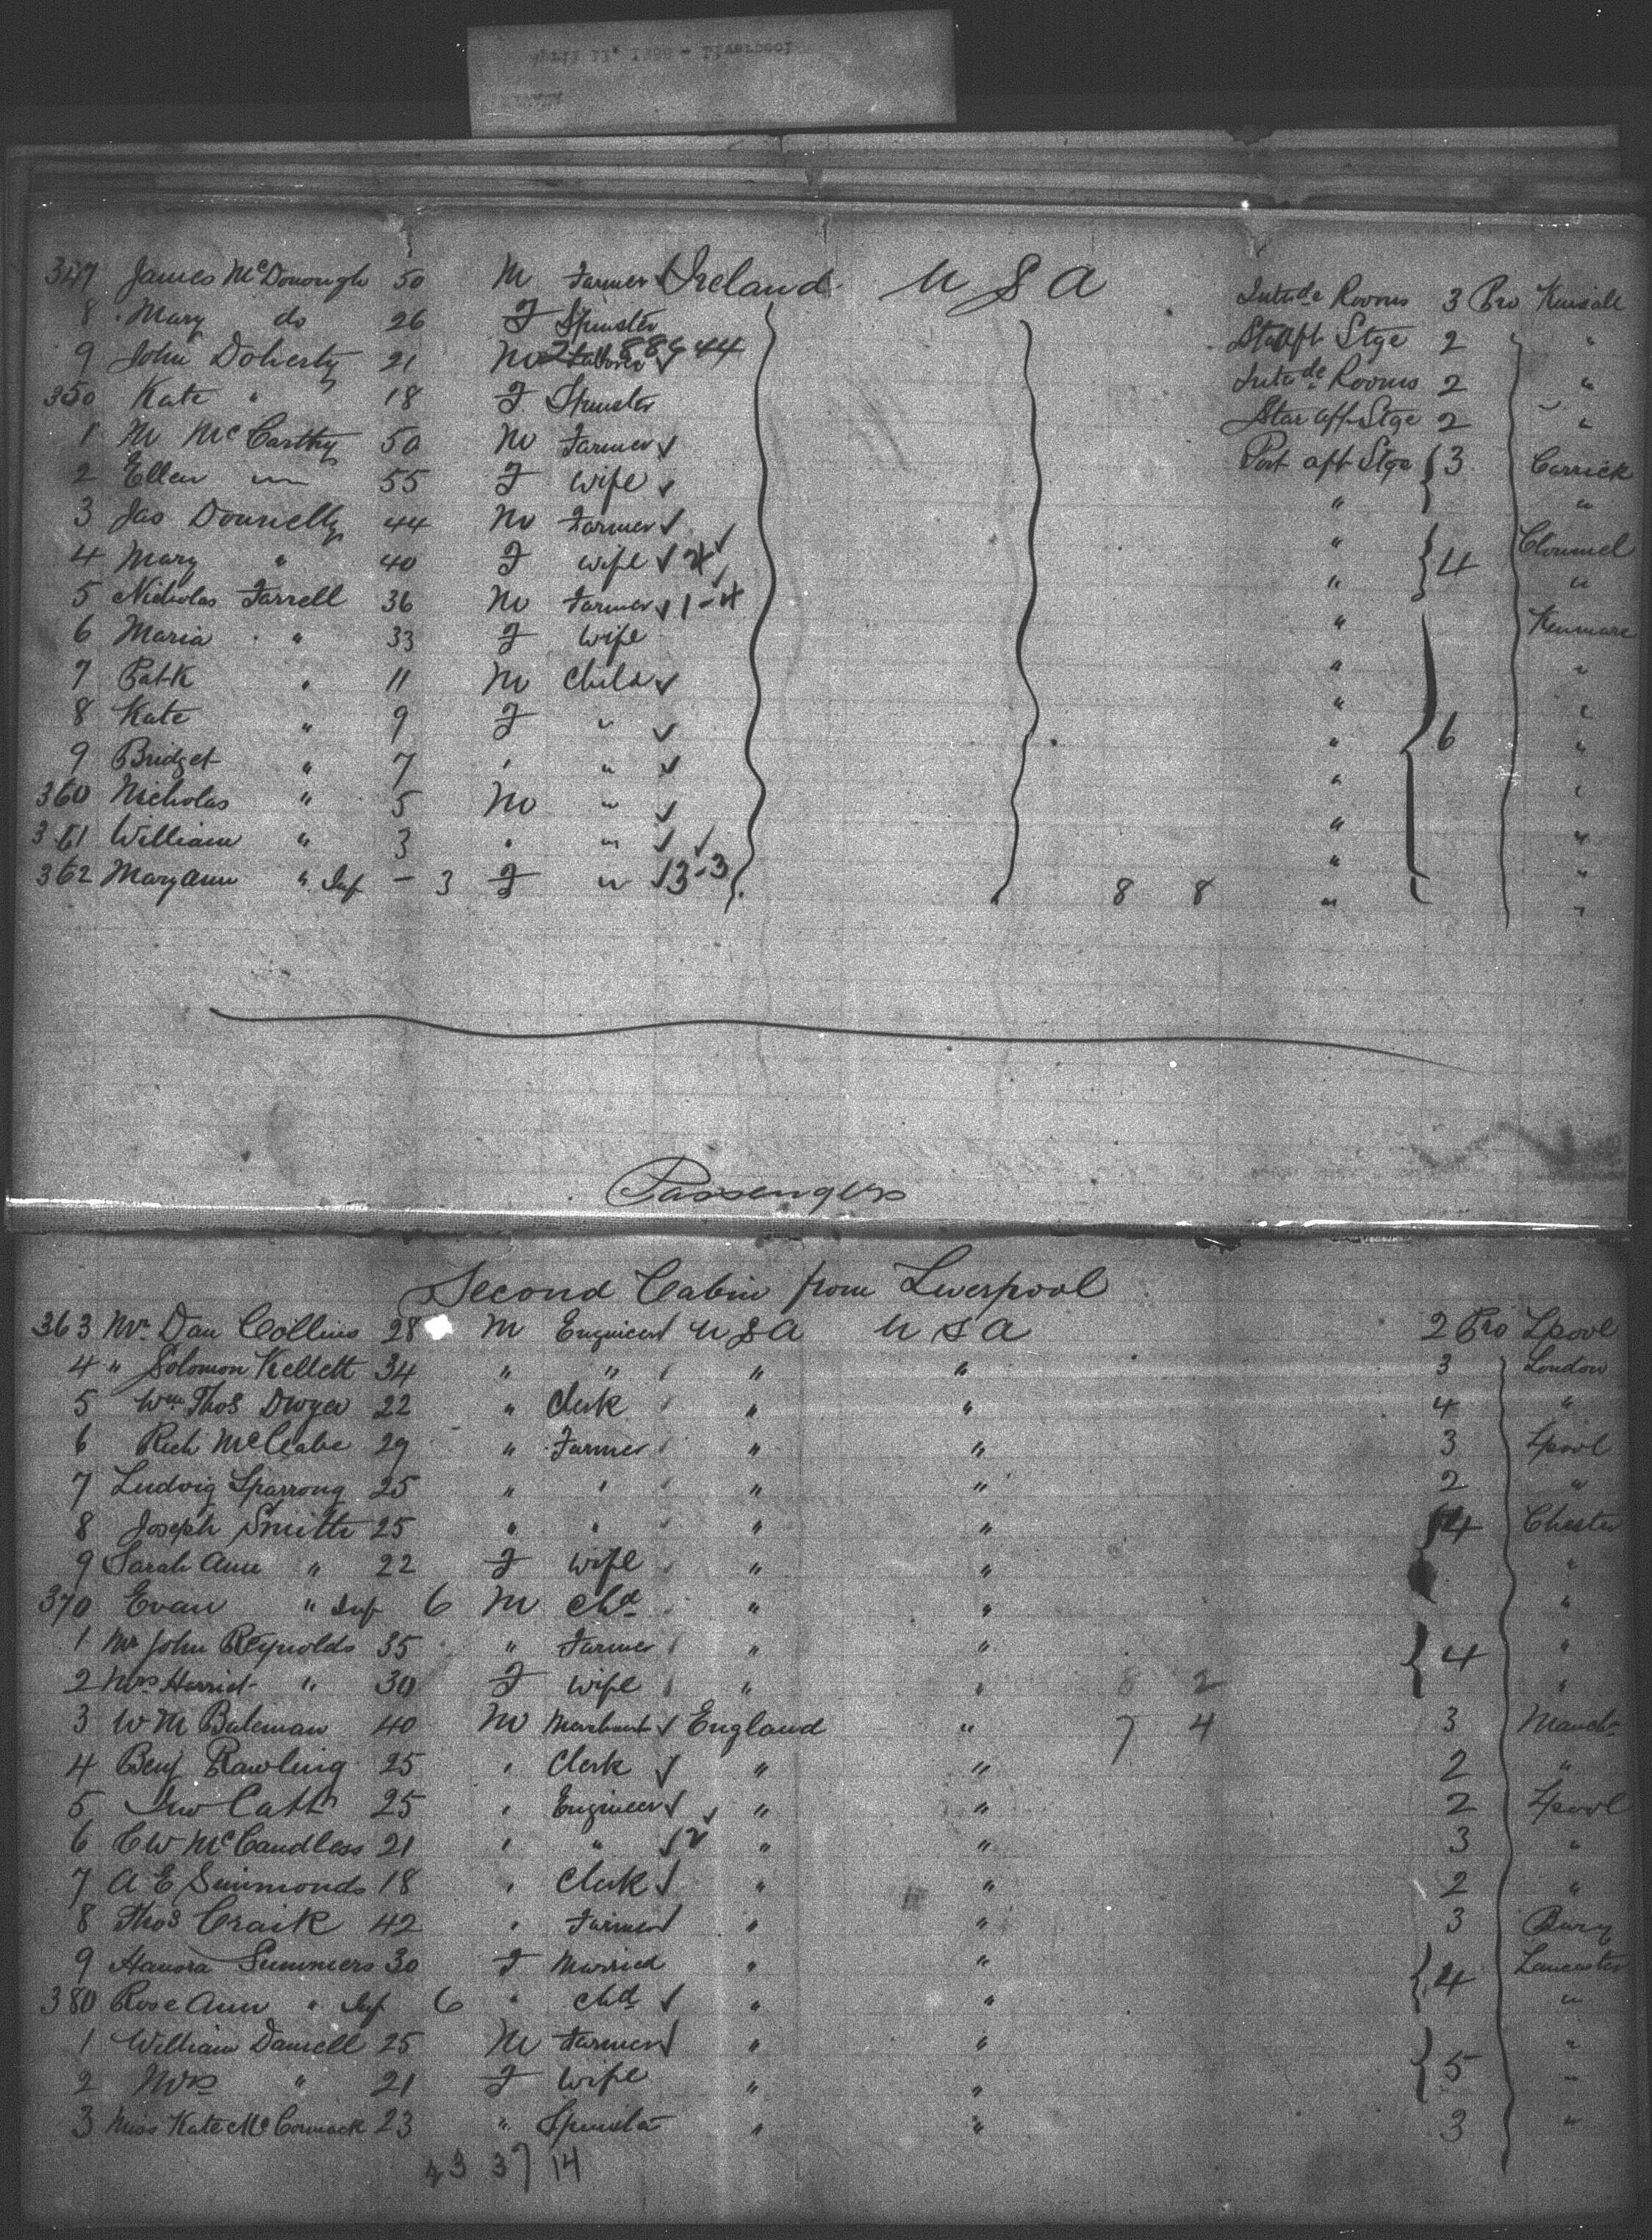 April 11, 1888 - Liverpool
347 James McDonough 50 M Farmer Ireland U S A Intde Rooms 3 Pro Kinsale
8 Mary do 26 F Spinster Star Aft Stge 2 "
9 John Doherty 21 M Labourer Intde Rooms 2 "
350 Kate " 18 F Spinster Star aft Stge 2 "
1 M McCarthy 50 M Farmer Port aft Stge 3 Carrick
2 Ellen " 55 F Wife " "
3 Jas Donnelly 44 M Farmer " 4 Clonmel
4 Mary " 40 F Wife 4 " "
5 Nicholas Farrell 36 M Farmer 1-4 " Kenmare
6 Maria " 33 F Wife " "
7 Patk " 11 M Child " "
8 Kate " 9 F " " 6 "
9 Bridget " 7 " " " "
360 Nicholas " 5 M " " "
361 William " 3 " " " "
362 Mary Ann " Inf - 3 F " 13-3 8 8 " "
Passengers
Second Cabin from Liverpool
363 Mr Dan Collins 28 M Engineer U S A U S A 2 Pro Lpool
4 " Solomon Kellett 34 " " " " 3 London
5 Wm Thos Dwyer 22 " Clerk " " 4 "
6 Rich McCabe 29 " Farmer " " 3 Lpool
7 Ludvig Sparrong 25 " " " " 2 "
8 Joseph Smith 25 " " " " 4 Chester
9 Sarah Ann " 22 F Wife " " "
370 Evan " Inf 6 M Chd " " "
1 Mr John Reynolds 35 " Farmer " " 4 "
2 Mrs Harriet " 30 F Wife " " 8 2 "
3 W M Bateman 40 M Merchant England " 7 4 3 Manchr
4 Benj Rawling 25 " Clerk " " 2 "
5 Jno Catt 25 " Engineer " " 2 Lpool
6 C W McCandless 21 " " 2 " " 3 "
7 A E Simmonds 18 " Clerk " " 2 "
8 Thos Craik 42 " Farmer " " 3 Bury
9 Hanora Summers 30 F Married " " 4 Lancaster
380 Rose Ann " Inf 6 " Chd " " "
1 William Daniell 25 M Farmer " " 5 "
2 Mrs " 21 F Wife " " "
3 Miss Kate McCormack 23 " Spinster " " 3 "
23 37 14